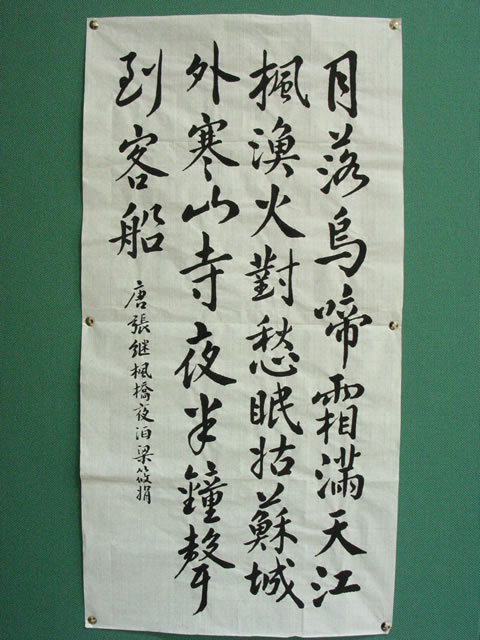 月落烏啼霜滿天江
楓漁火對愁眠姑蘇城
外寒山寺夜半鐘聲
到客船
唐張继楓橋夜泊梁筱捐